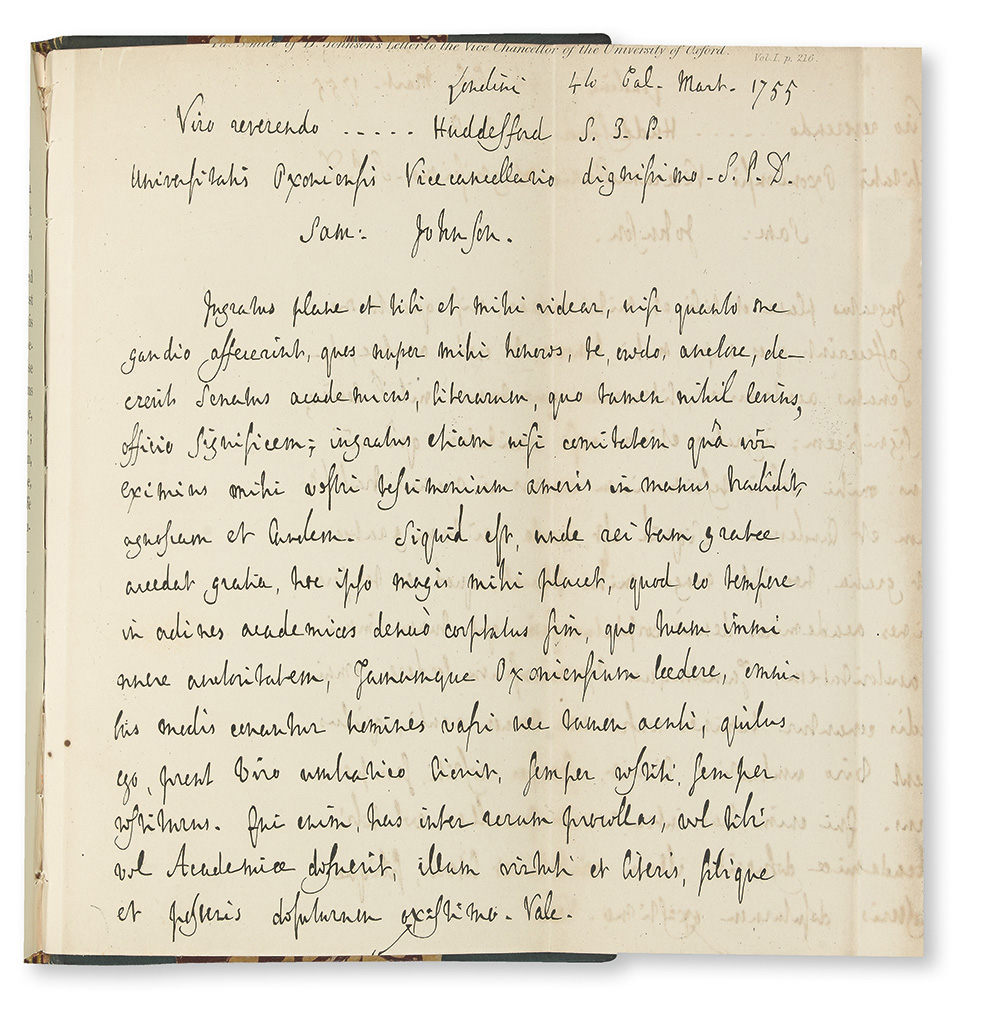 Fac Simile of Dr. Johnson's Letter to the Vice Chancellor of the University of Oxford.
Vol. I. p. 216.
Londini 4to Cal. Mart. 1755
Viro reverendo ----- Huddesford S. T. P.
Universitatis Oxoniensis Vicecancellario dignissimo. S. P. D.
Sam: Johnson.
Ingratus plane et tibi et mihi videar, nisi quanto me
gaudio affecerint, quos nuper mihi honores, te, credo, auctore, de-
crevit Senatus academicus, literarum, quo tamen nihil levius,
officio significem; ingratus etiam nisi comitatem quâ vir
eximius mihi vestri testimonium amoris in manus tradidit,
agnoscam et laudem. Siquid est, unde rei tam gratæ
accedat gratia, hoc ipso magis mihi placet, quod eo tempore
in ordines academicos denuò cooptatus sim, quo tuam immi
nuere auctoritatem, famamque Oxoniensium lædere, omni-
bus modis conantur homines vafri nec tamen acuti, quibus
ego, prout viro umbratico licuit, semper restiti, semper
restiturus. Qui enim, has inter rerum procellas, vel tibi
vel Academiæ defuerit, illum virtuti et literis, sibique
et posteris defuturum existimo. Vale.